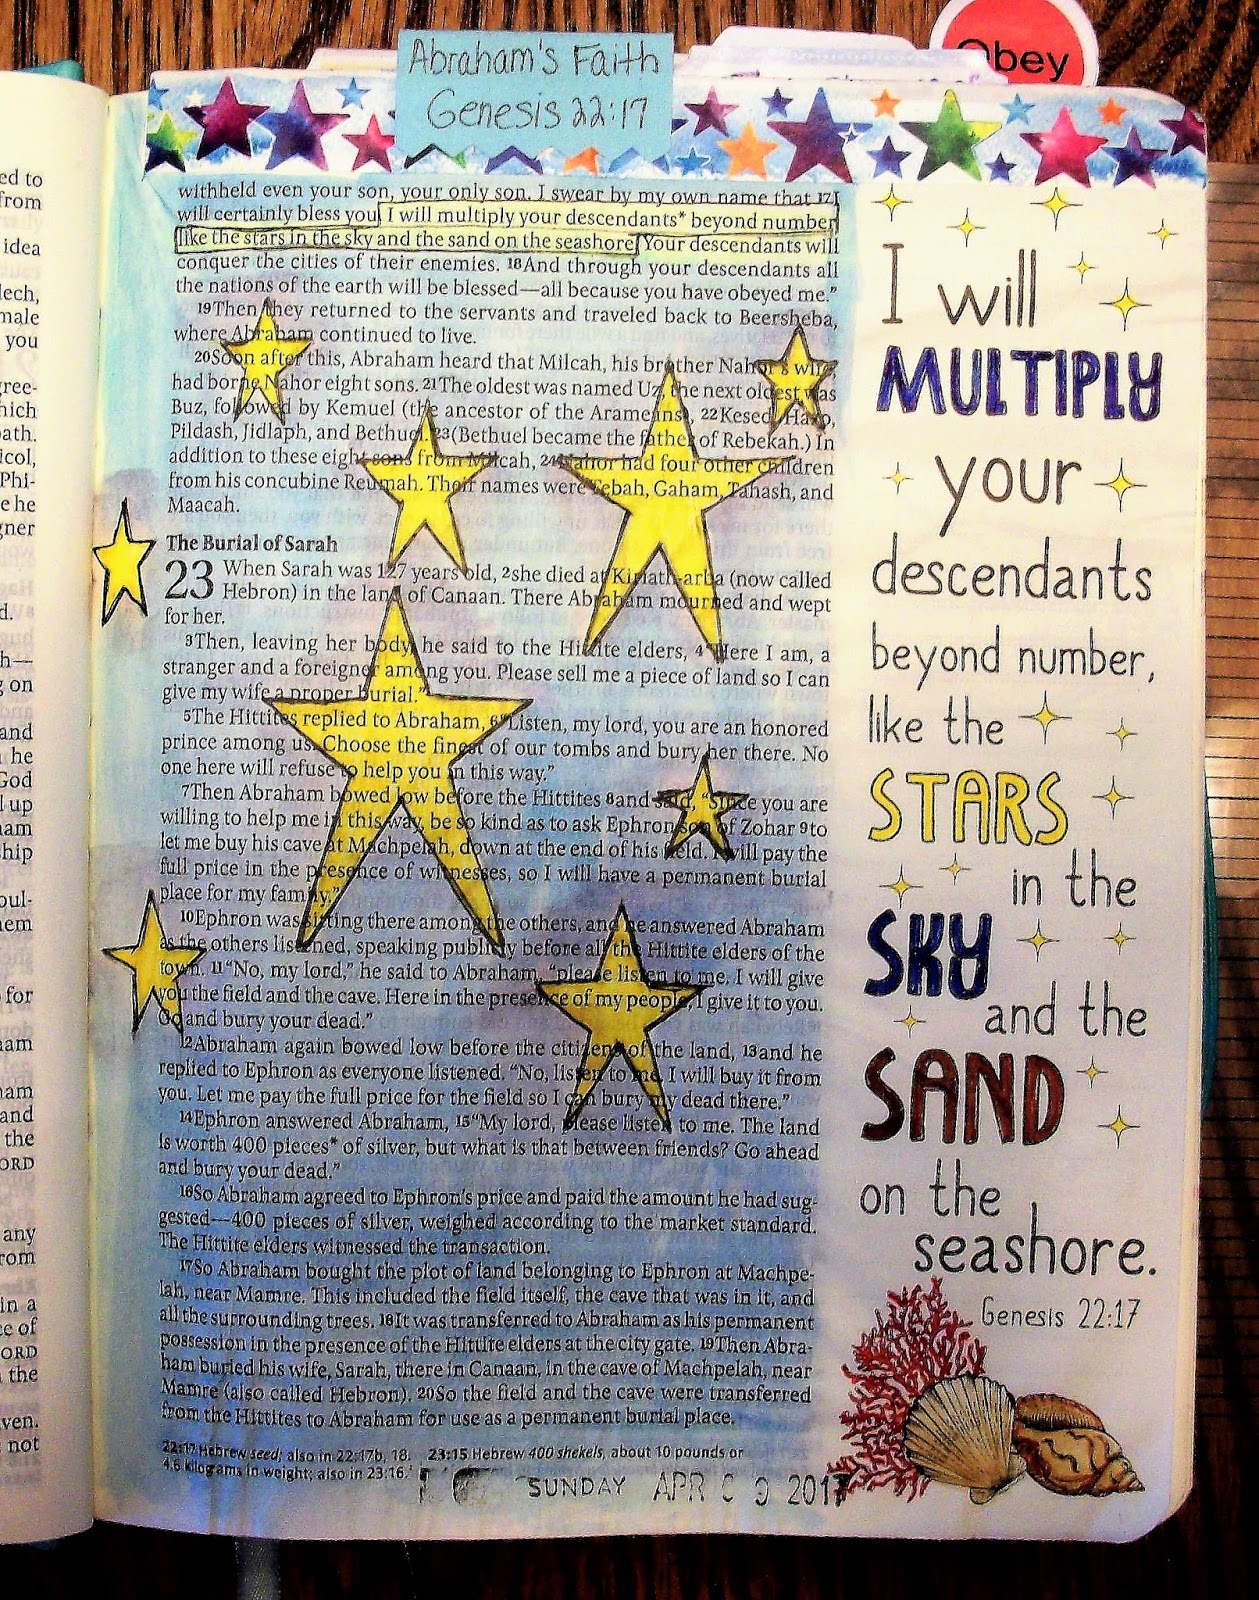 Obey
Abraham's Faith
Genesis 22:17
withheld even your son, your only son. I swear by my own name that 17I
will certainly bless you. I will multiply your descendants* beyond number,
like the stars in the sky and the sand on the seashore. Your descendants will
conquer the cities of their enemies. 18And through your descendants all
the nations of the earth will be blessed—all because you have obeyed me."
19Then they returned to the servants and traveled back to Beersheba,
where Abraham continued to live.
20Soon after this, Abraham heard that Milcah, his brother Nahor's wife,
had borne Nahor eight sons. 21The oldest was named Uz, the next oldest was
Buz, followed by Kemuel (the ancestor of the Arameans), 22Kesed, Hazo,
Pildash, Jidlaph, and Bethuel. 23(Bethuel became the father of Rebekah.) In
addition to these eight sons from Milcah, 24Nahor had four other children
from his concubine Reumah. Their names were Tebah, Gaham, Tahash, and
Maacah.
The Burial of Sarah
23 When Sarah was 127 years old, 2she died at Kiriath-arba (now called
Hebron) in the land of Canaan. There Abraham mourned and wept
for her.
3Then, leaving her body, he said to the Hittite elders, 4"Here I am, a
stranger and a foreigner among you. Please sell me a piece of land so I can
give my wife a proper burial."
5The Hittites replied to Abraham, 6"Listen, my lord, you are an honored
prince among us. Choose the finest of our tombs and bury her there. No
one here will refuse to help you in this way."
7Then Abraham bowed low before the Hittites 8and said, "Since you are
willing to help me in this way, be so kind as to ask Ephron son of Zohar 9to
let me buy his cave at Machpelah, down at the end of his field. I will pay the
full price in the presence of witnesses, so I will have a permanent burial
place for my family."
10Ephron was sitting there among the others, and he answered Abraham
as the others listened, speaking publicly before all the Hittite elders of the
town. 11"No, my lord," he said to Abraham, "please listen to me. I will give
you the field and the cave. Here in the presence of my people, I give it to you.
Go and bury your dead."
12Abraham again bowed low before the citizens of the land, 13and he
replied to Ephron as everyone listened. "No, listen to me. I will buy it from
you. Let me pay the full price for the field so I can bury my dead there."
14Ephron answered Abraham, 15"My lord, please listen to me. The land
is worth 400 pieces* of silver, but what is that between friends? Go ahead
and bury your dead."
16So Abraham agreed to Ephron's price and paid the amount he had sug-
gested—400 pieces of silver, weighed according to the market standard.
The Hittite elders witnessed the transaction.
17So Abraham bought the plot of land belonging to Ephron at Machpe-
lah, near Mamre. This included the field itself, the cave that was in it, and
all the surrounding trees. 18It was transferred to Abraham as his permanent
possession in the presence of the Hittite elders at the city gate. 19Then Abra-
ham buried his wife, Sarah, there in Canaan, in the cave of Machpelah, near
Mamre (also called Hebron). 20So the field and the cave were transferred
from the Hittites to Abraham for use as a permanent burial place.
22:17 Hebrew seed; also in 22:17b, 18. 23:15 Hebrew 400 shekels, about 10 pounds or
4.6 kilograms in weight; also in 23:16.
SUNDAY APR 09 2017
I will
MULTIPLY
your
descendants
beyond number,
like the
STARS
in the
SKY
and the
SAND
on the
seashore.
Genesis 22:17